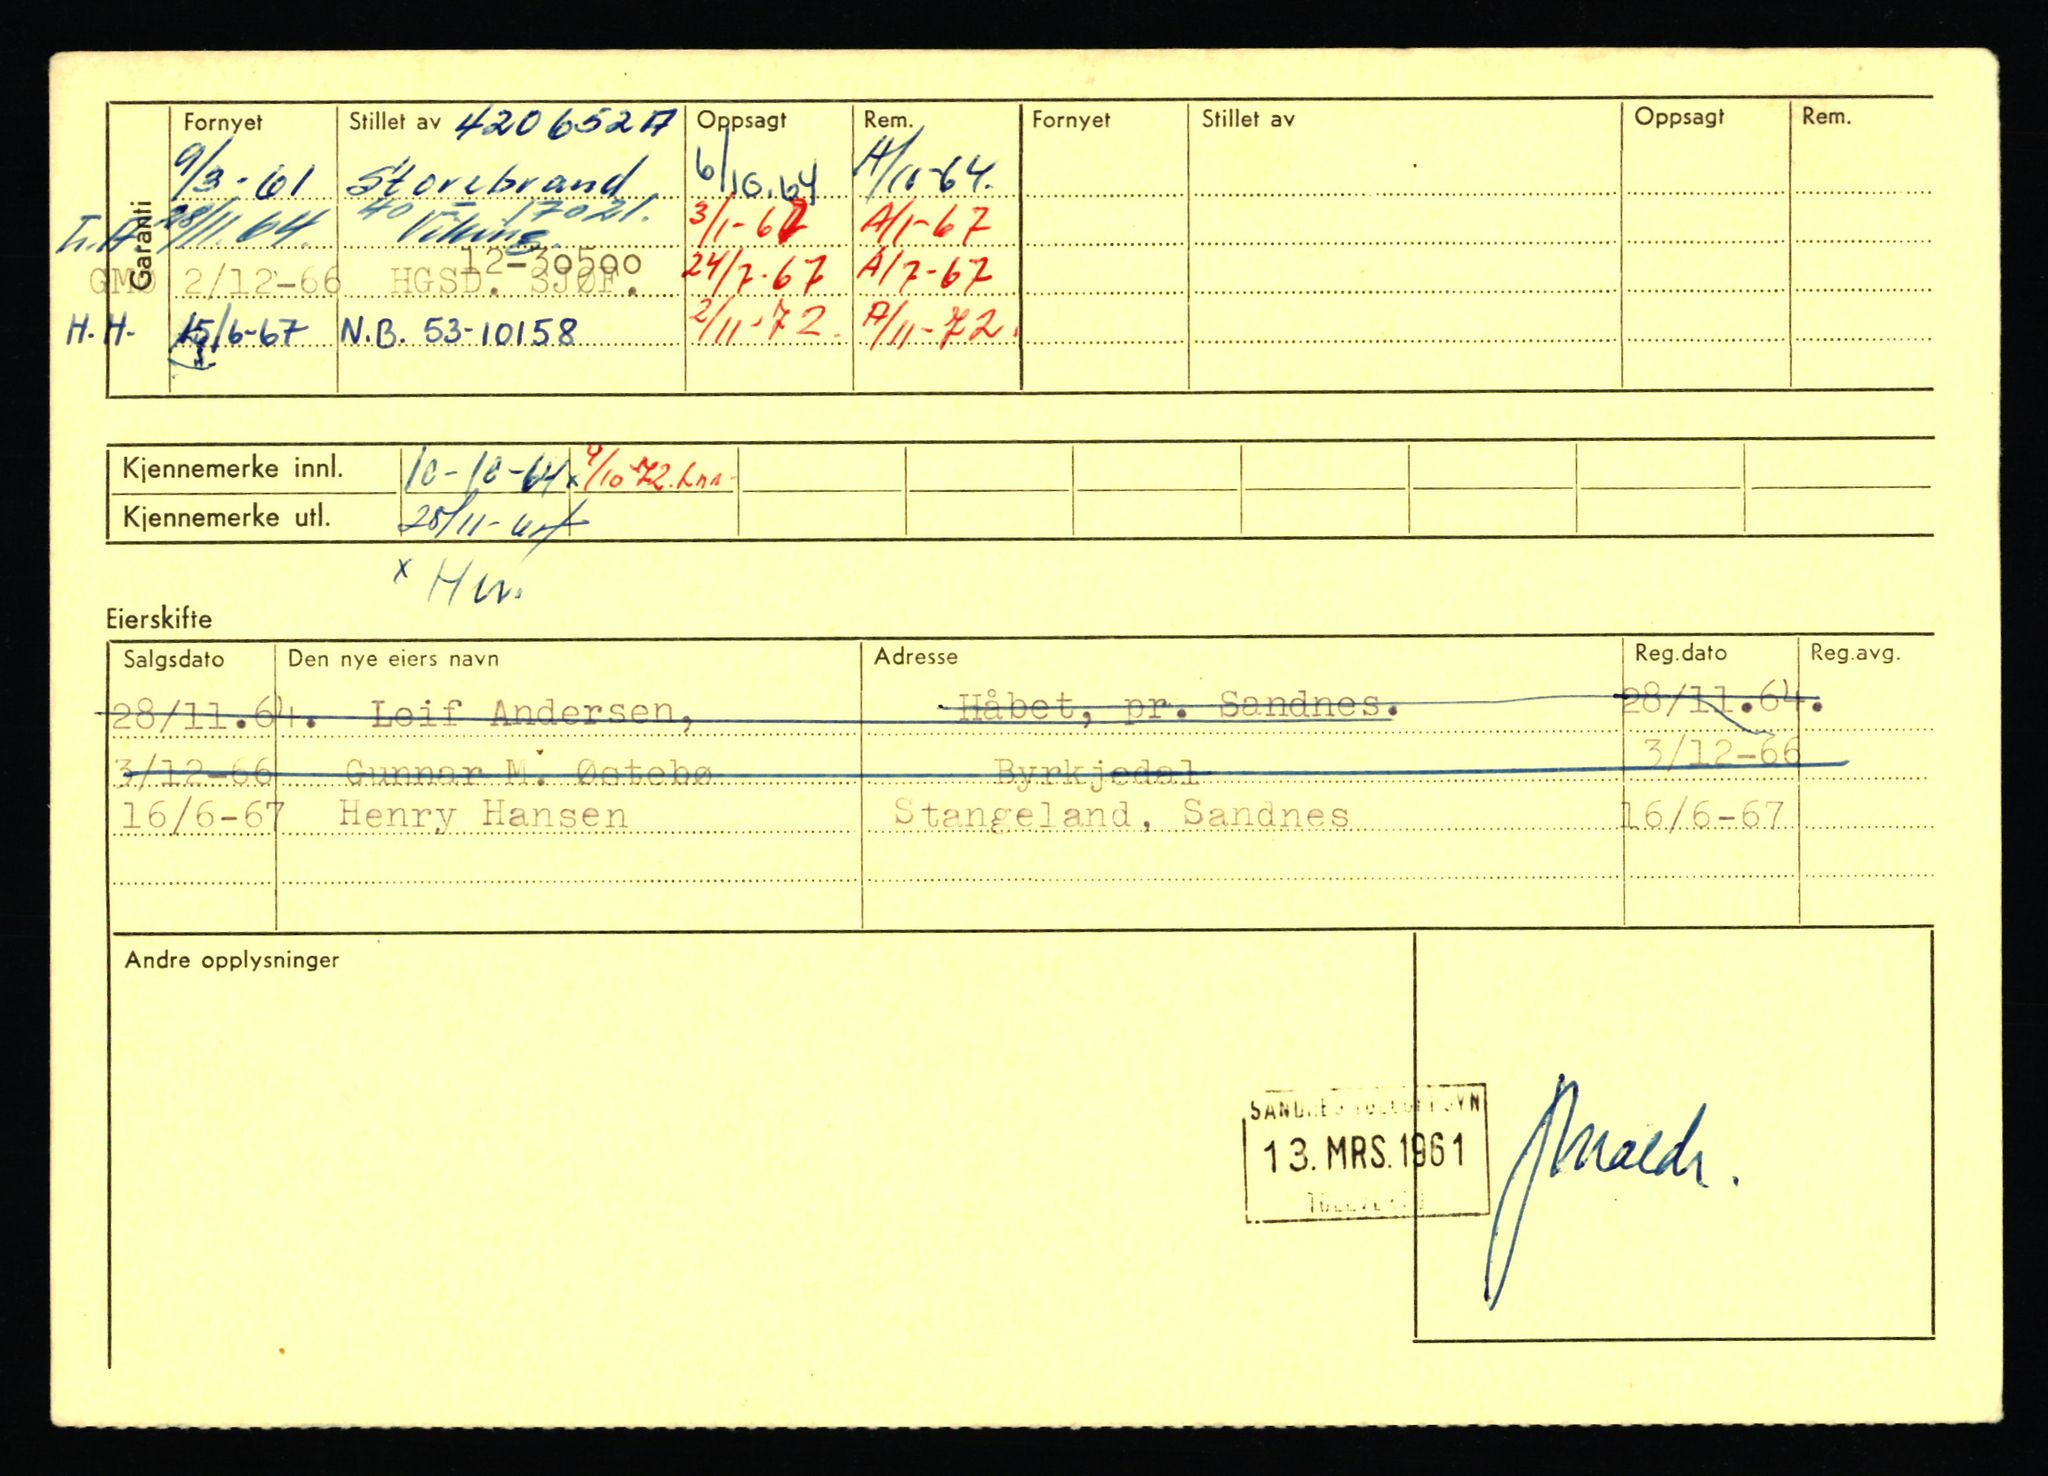 Garanti
Fornyet Stillet av 4206527A Oppsagt Rem. Fornyet Stillet av Oppsagt Rem.
9/3-61 Storebrand 6/10.64 A/10-64.
L.A 28/11.64. 40 - 17021. Viking 3/1-67 A/1-67
12-30500
GMØ 2/12-66 HGSD. SJØF. 24/7-67 A/7-67
H.H. 15/6-67 N.B. 53-10158 2/11-72. A/11-72.
Kjennemerke innl. 10-10-64x 4/10-72.
Kjennemerke utl. 28/11-64
x
Eierskifte
Salgsdato Den nye eiers navn Adresse Reg.dato Reg.avg.
28/11.64. Leif Andersen, Håbet, pr. Sandnes. 28/11.64.
3/12-66 Gunnar M. Østebø Byrkjedal 3/12-66
16/6-67 Henry Hansen Stangeland, Sandnes 16/6-67
Andre opplysninger
SANDNES TOLLOPPSYN
13. MRS. 1961